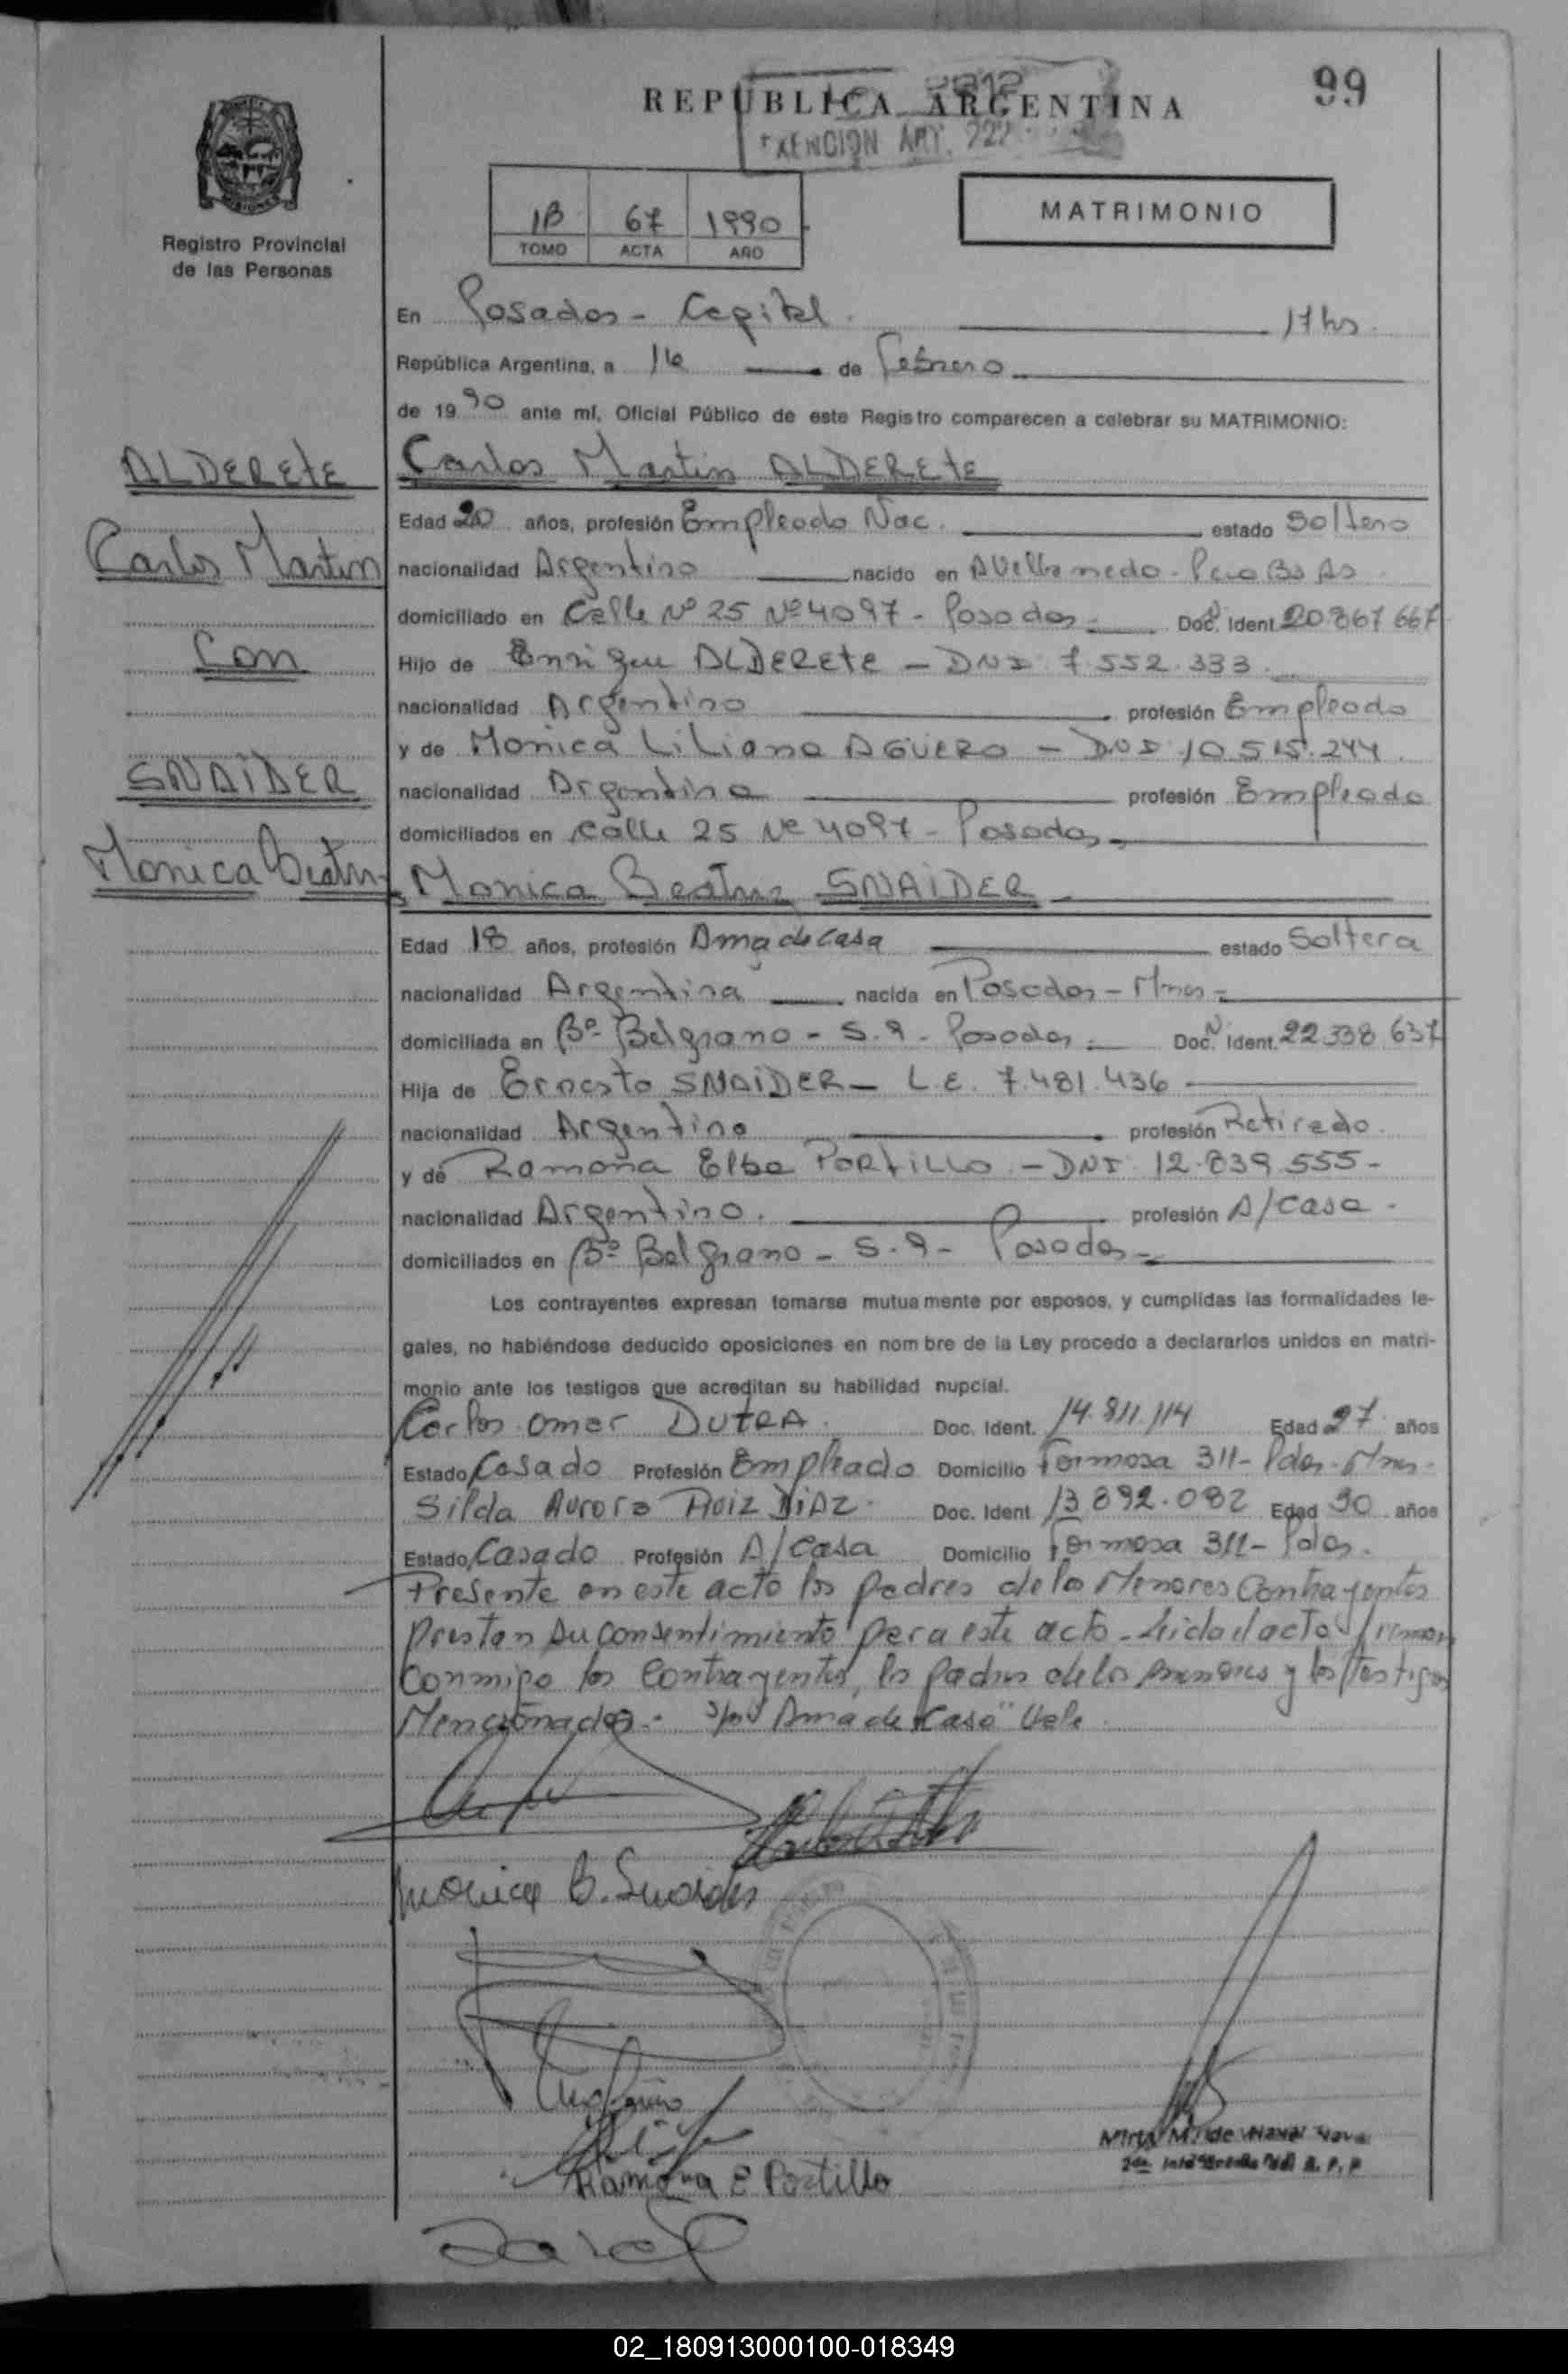 REPUBLICA ARGENTINA
99
EXENCION ART. 222
Registro Provincial
de las Personas
1B 67 1990
TOMO ACTA AÑO
MATRIMONIO
En Posadas - Capital 17 hs.
República Argentina, a 16 de Febrero
de 1990 ante mí, Oficial Público de este Registro comparecen a celebrar su MATRIMONIO:
ALDERETE
Carlos Martin
Con
SNAIDER
Monica Beatriz
Carlos Martin ALDERETE
Edad 20 años, profesión Empleado Nac. estado Soltero
nacionalidad Argentino nacido en Avellaneda - Pcia Bs As
domiciliado en Calle Nº 25 Nº 4097 - Posadas - Doc. Ident. 20.867.667
Hijo de Enrique ALDERETE - DNI 7.552.333.
nacionalidad Argentino profesión Empleado
y de Monica Liliana AGÜERO - DNI 10.515.244.
nacionalidad Argentina profesión Empleada
domiciliados en calle 25 Nº 4097 - Posadas -
Monica Beatriz SNAIDER
Edad 18 años, profesión Ama de casa estado Soltera
nacionalidad Argentina nacida en Posadas - Mnes -
domiciliada en Bº Belgrano - S.9 - Posadas - Doc. Ident. 22.338.637
Hija de Ernesto SNAIDER - L.E. 7.481.436
nacionalidad Argentino profesión Retirado.
y de Ramona Elba PORTILLO - DNI 12.839.555 -
nacionalidad Argentino. profesión A/casa -
domiciliados en Bº Belgrano - S.9 - Posadas -
Los contrayentes expresan tomarse mutuamente por esposos, y cumplidas las formalidades le-
gales, no habiéndose deducido oposiciones en nombre de la Ley procedo a declararlos unidos en matri-
monio ante los testigos que acreditan su habilidad nupcial.
Carlos Omar DUTRA. Doc. Ident. 14.811.114 Edad 27 años
Estado Casado Profesión Empleado Domicilio Formosa 311 - Pdas - Mnes -
Silda Aurora RUIZ DIAZ. Doc. Ident 13.892.082 Edad 30 años
Estado Casado Profesión A/Casa Domicilio Formosa 311 - Pdas.
Presente en este acto los padres de los Menores Contrayentes
prestan su consentimiento para este acto - Leida el acta firman
conmigo los Contrayentes, los padres de los menores y los testigos
Mencionados - "Ama de Casa" Vale.
Monica B. Snaider
Ramona E Portillo
02_180913000100-018349